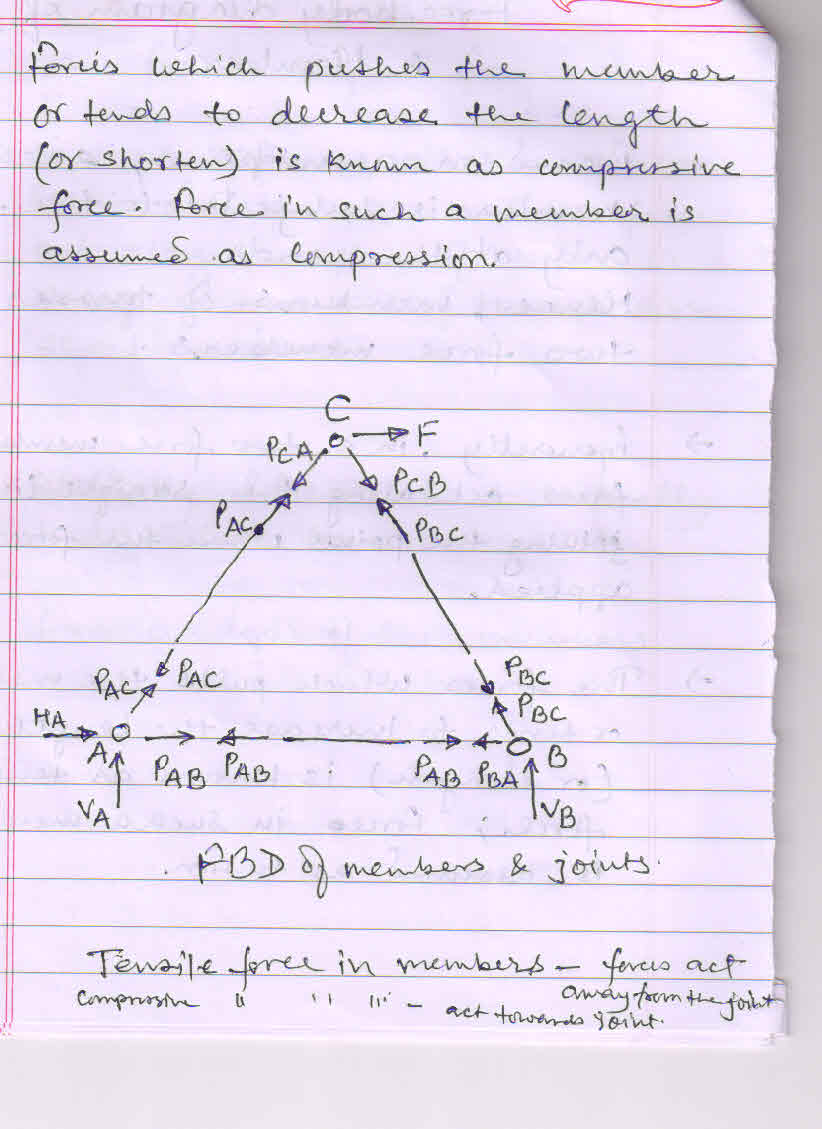 Forces which pushes the member
or tends to decrease the length
(or shorten) is known as compressive
force. Force in such a member is
assumed as compression.
C
F
PCA
PCB
PAC
PBC
PBC
PAC PAC
PBC
HA
A
B
PAB PAB PAB PBA
VA
VB
FBD of members & joints.
Tensile force in members – forces act
away from the joint
compressive " " " – act towards joint.